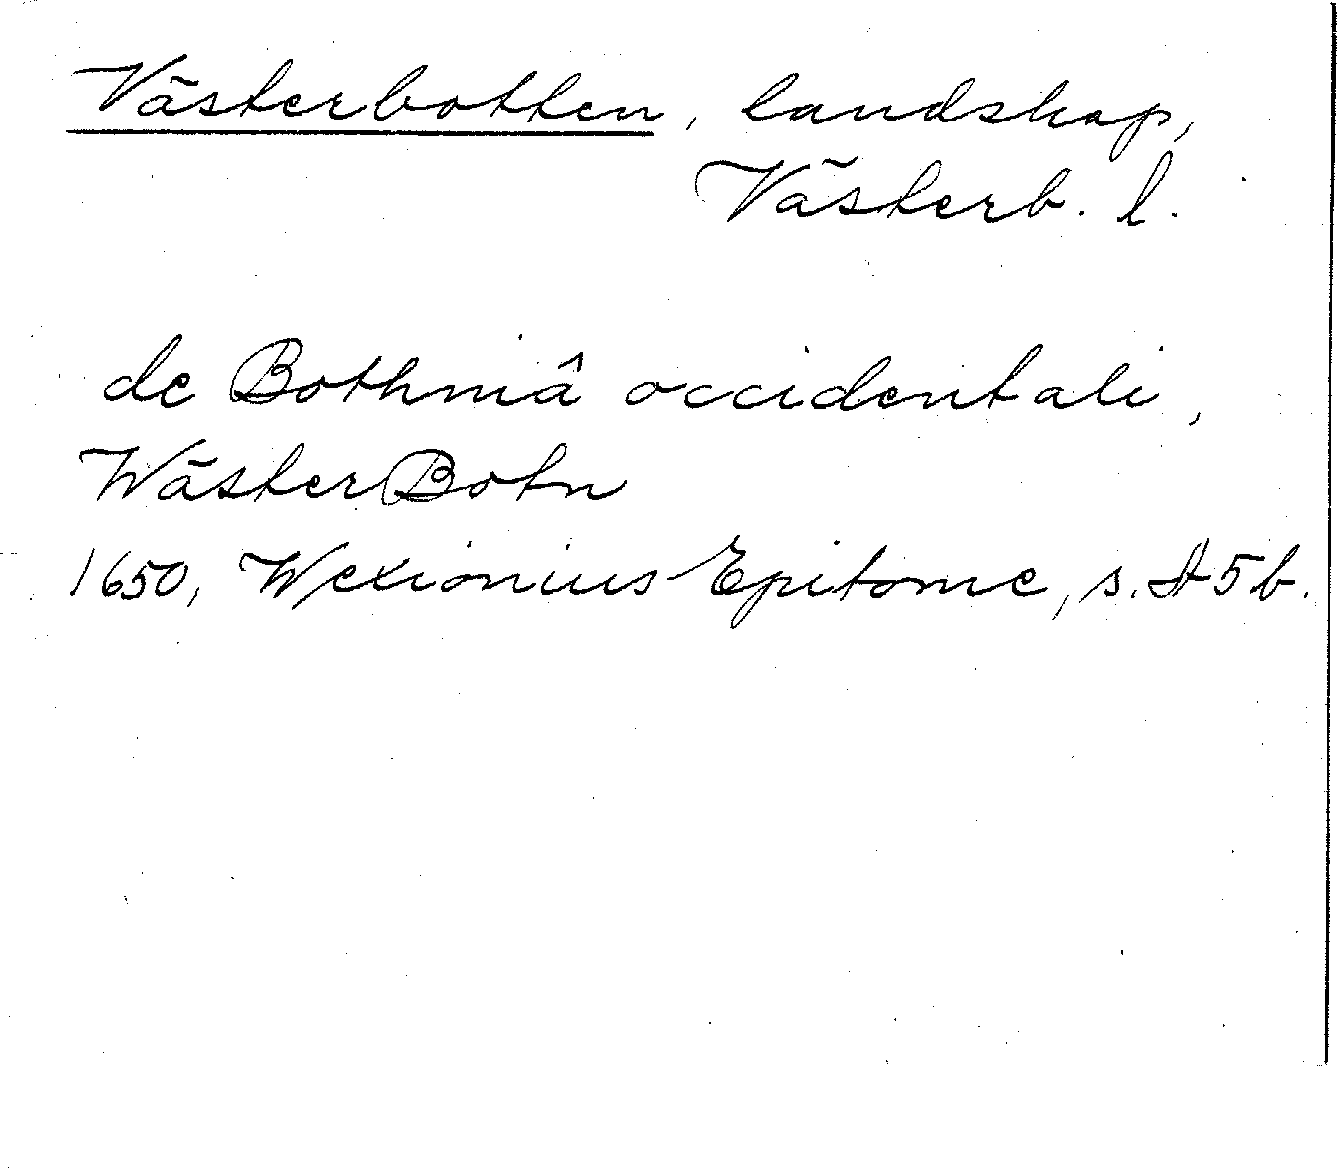 Västerbotten, landskap,
Västerb. l.
de Bothniâ occidentali,
WästerBotn
1650, Wexionius Epitome, s. A5b.